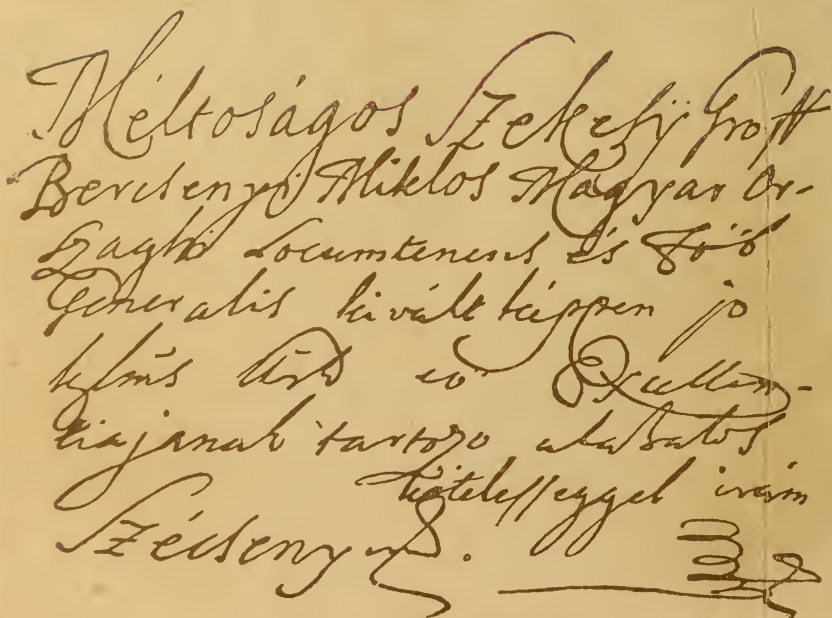 Méltoságos Szekelÿ Groff
Bercsenyi Miklos Magyar Or-
szaghi Locumtenens és Fööb
Generalis kivált képpen jo
Urk eö Excellen-
tiajanak tartozo alaszatos
kötelesseggel irám
Szécseny